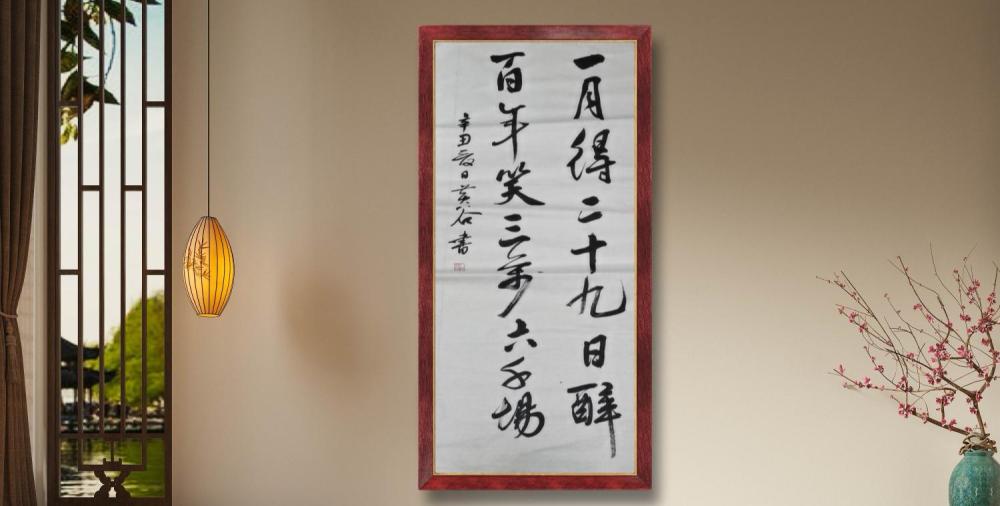 一月得二十九日醉
百年笑三萬六千場
辛丑夏日黄谷書